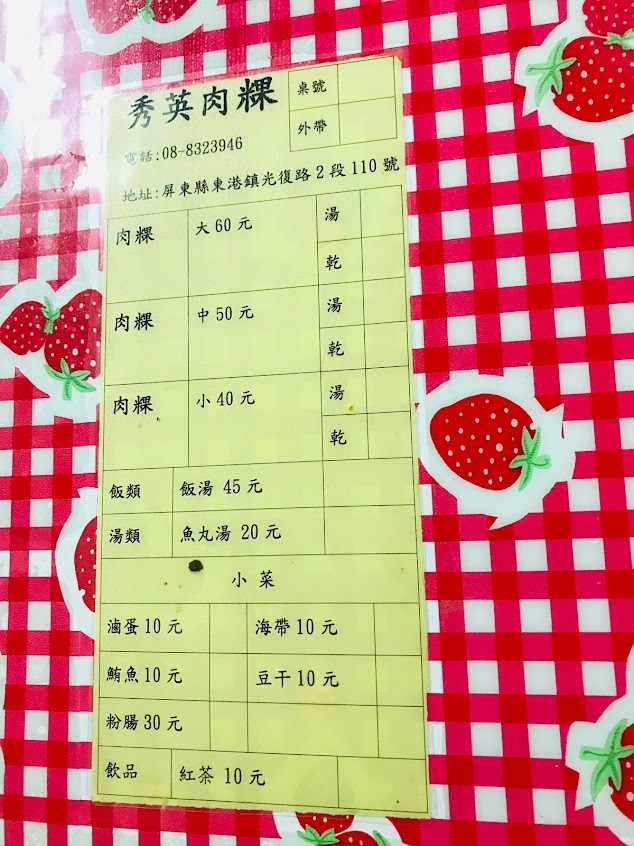 秀英肉粿
桌號
外帶
電話:08-8323946
地址:屏東縣東港鎮光復路2段110號
肉粿 大60元 湯
乾
肉粿 中50元 湯
乾
肉粿 小40元 湯
乾
飯類 飯湯 45元
湯類 魚丸湯 20元
小菜
滷蛋10元 海帶10元
鮪魚10元 豆干10元
粉腸30元
飲品 紅茶 10元